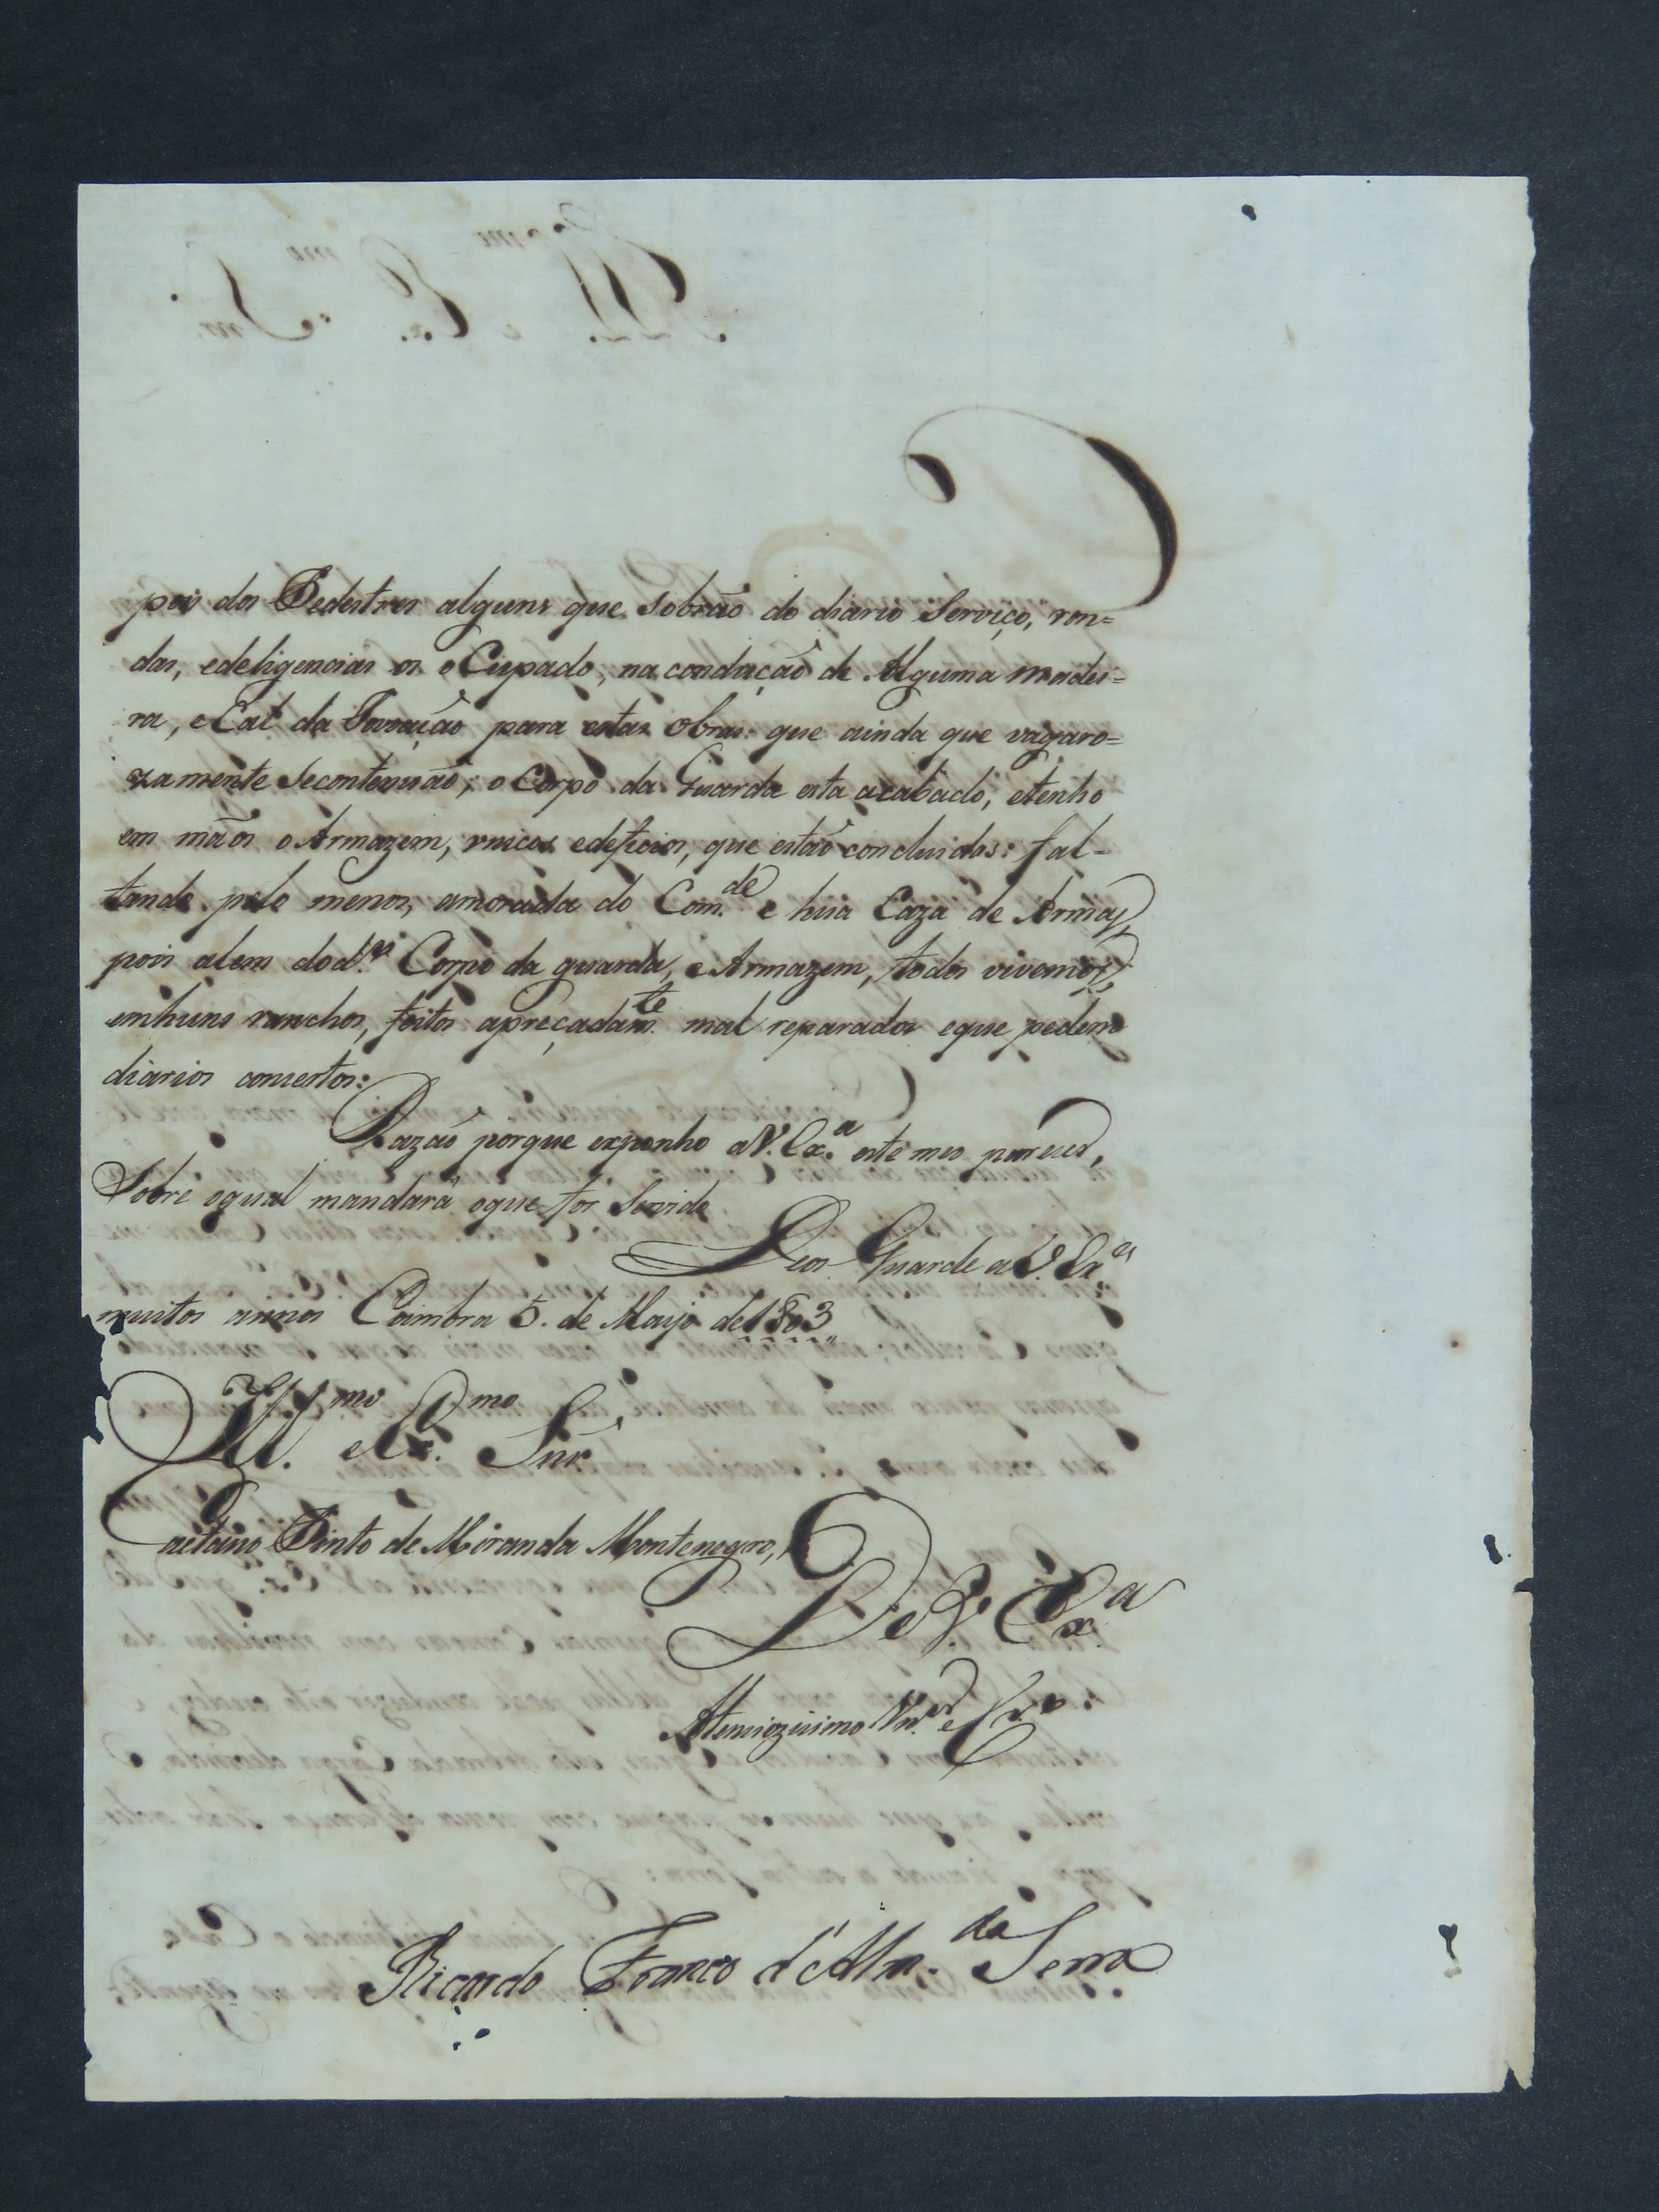 pois dos Pedestres alguns que sobrão do diario Serviço, ron=
das, edeligencias os oCupado, na condução de Alguma madei=
ra, eCal da Povoação para estas obras: que ainda que vagaro=
zamente Secontenuão; o Corpo da Guarda esta acabado, etenho
em mãos o Armazem, unicos edeficios, que estão concluidos: fal=
tando pelo menos, amorada do Com.de e hũa Caza de Armas,
pois alem dod.º Corpo da guarda, e Armazem, todos vivemos,
emhuns ranchos, feitos apreçadam.te mal reparados eque pedem
diarios consertos:
Razão porque exponho aV. Ex.a este meo parecer,
Sobre oqual mandará oque for Servido
Deos Guarde a V. Ex.a
muitos annos Coimbra 5. de Mayo de 1803
Ill.mo eEx.mo Snr.
Caetano Pinto de Miranda Montenegro,
De V. Ex.a
Atenciozissimo V.or e C.
Ricardo Franco d'Alm.da Serra